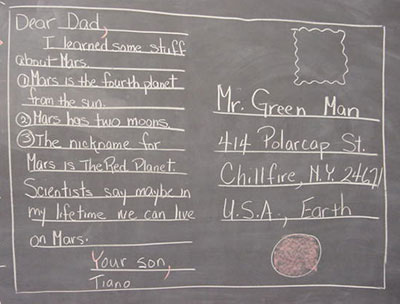 Dear Dad,
I learned some stuff
about Mars.
① Mars is the fourth planet
from the sun.
② Mars has two moons.
③ The nickname for
Mars is The Red Planet.
Scientists say maybe in
my lifetime we can live
on Mars.
Your son,
Tiano
Mr. Green Man
414 Polarcap St.
Chillfire, N.Y. 24671
U.S.A., Earth